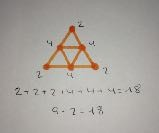 2
4 4
2 4 2
2+2+2+4+4+4=18
9·2=18